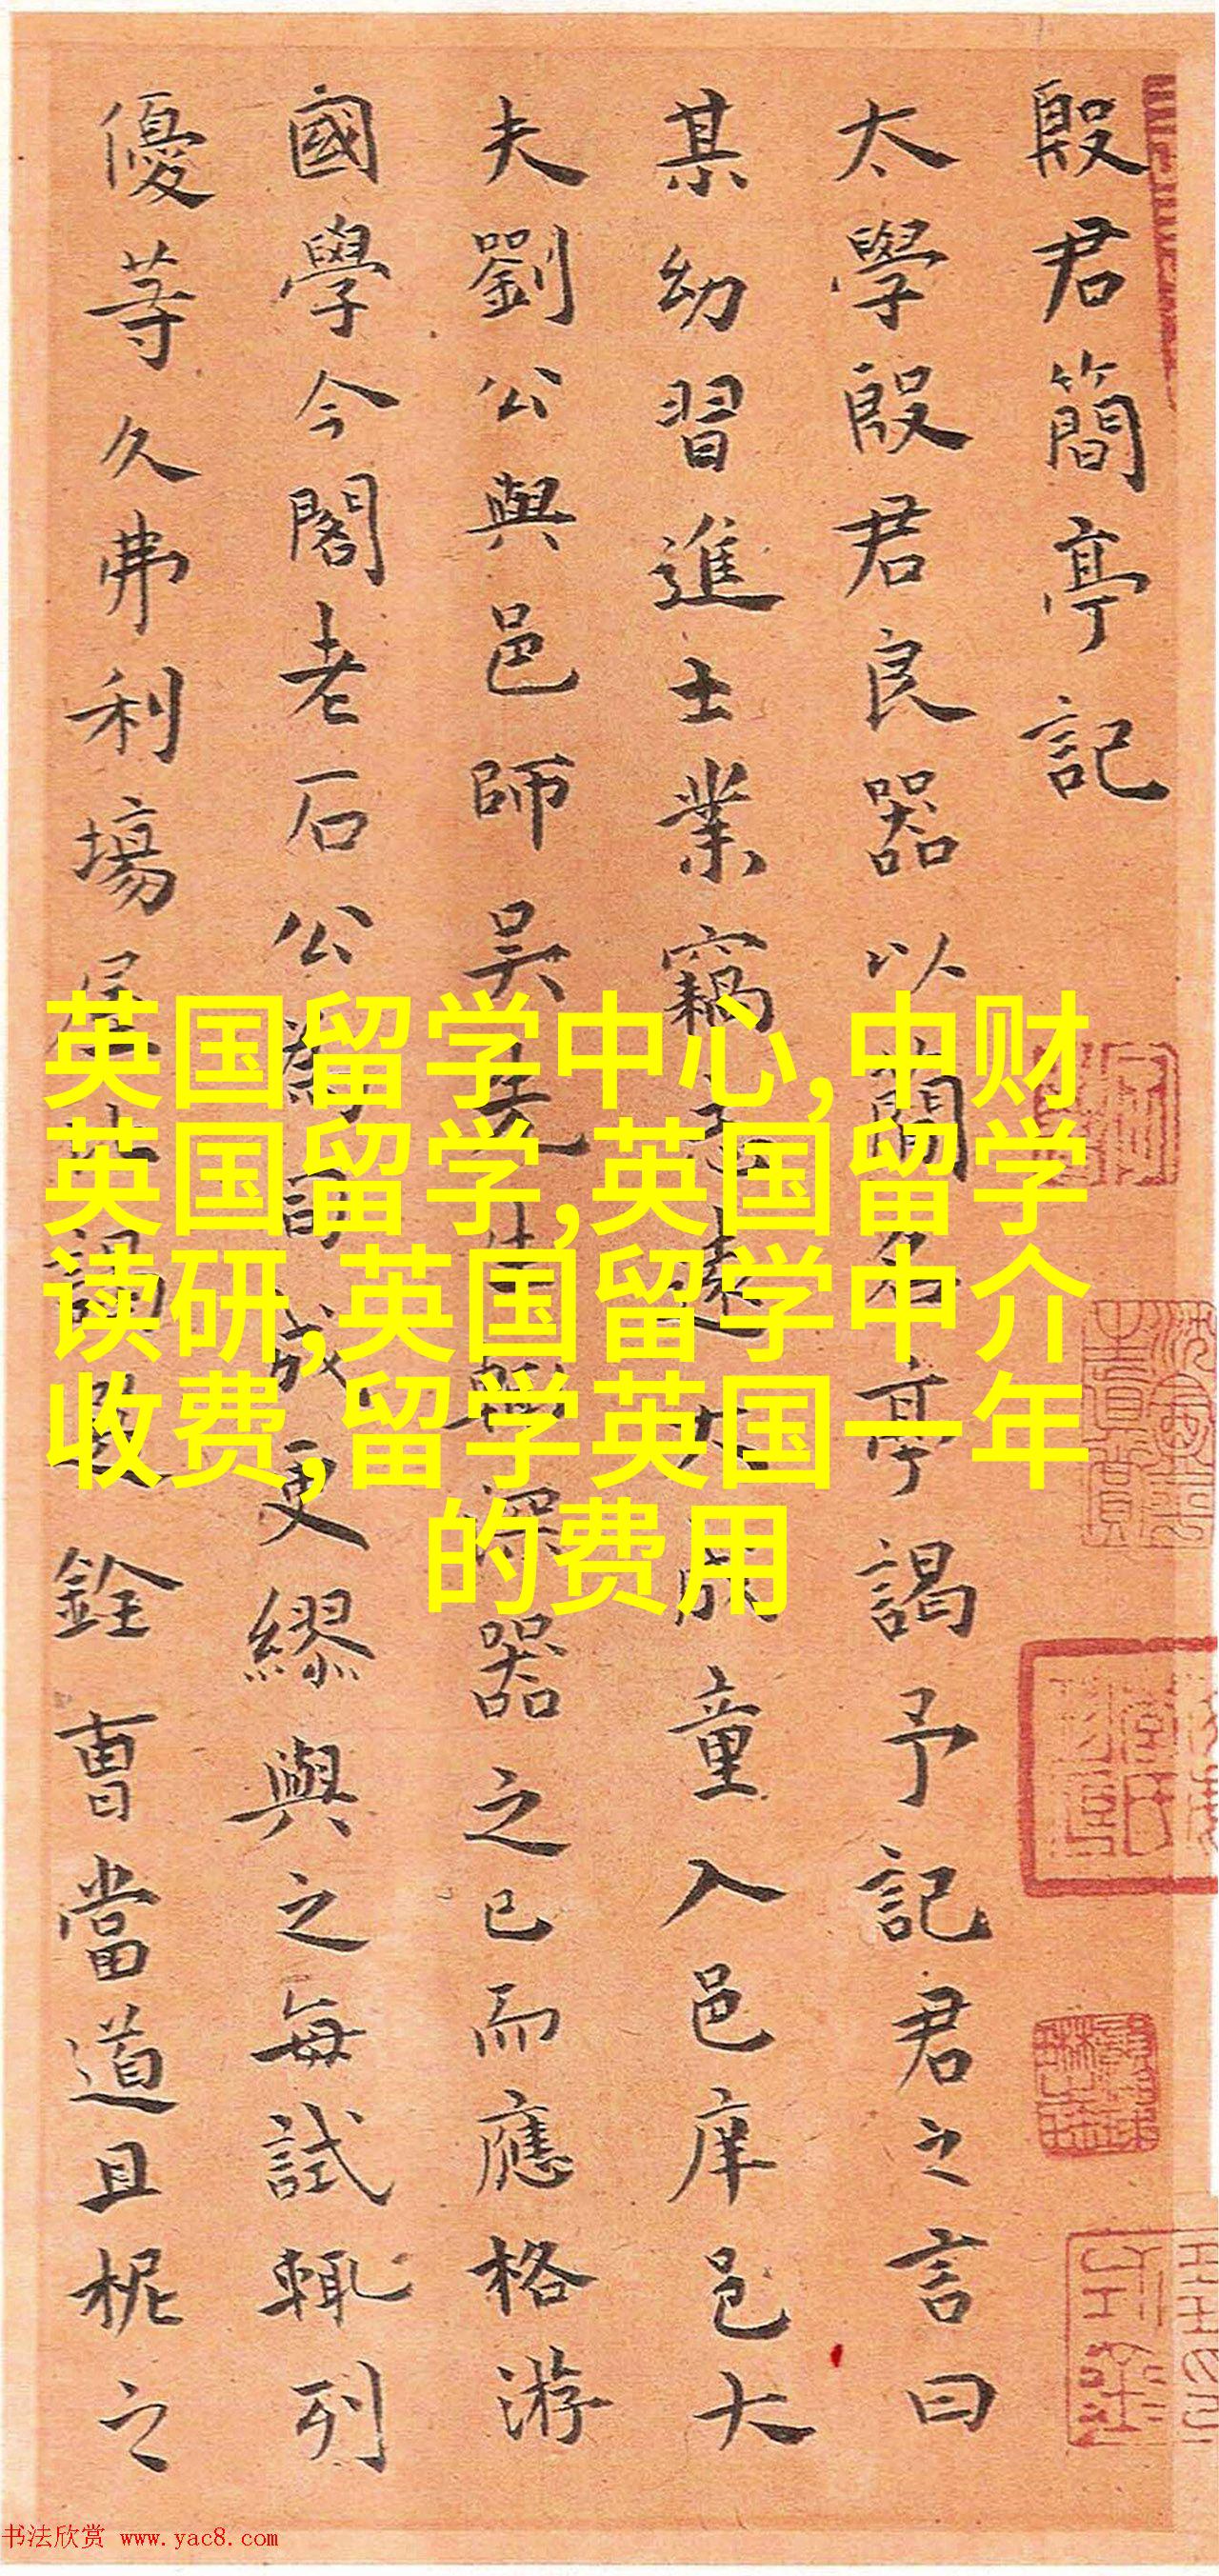 殷君簡亭記
太學殷君良器以簡名亭謁予記君之言曰
某幼習進士業竊遠成童入邑庠邑大
夫劉公與邑師吳先生深器之已而應格游
國學今閣老石公為司成更繆與之每試輒列
優等久弗利場屋銓曹當道且柅之
英国留学中心,中财
英国留学,英国留学
读研,英国留学中介
收费,留学英国一年
的费用
书法欣赏 www.yac8.com